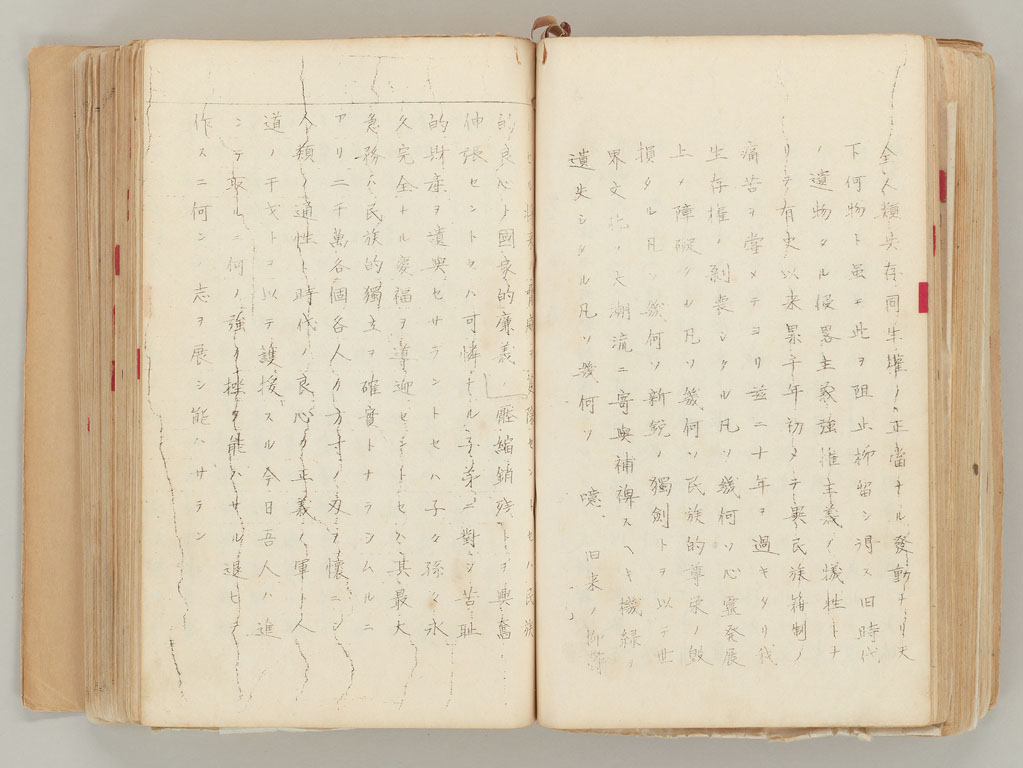 全人類共存同生權ノ正當ナル發動ナリ天
下何物ト雖モ此ヲ阻止抑留シ得ス旧時代
ノ遺物タル侵畧主義強権主義ノ犠牲トナ
リテ有史以来累千年初メテ異民族箝制ノ
痛苦ヲ嘗メテヨリ茲ニ十年ヲ過キタリ我
生存権ノ剝喪シタル凡ソ幾何ソ心靈發展
上ノ障礙タル凡ソ幾何ソ民族的尊栄ノ毀
損タル凡ソ幾何ソ新鋭ノ獨創トヲ以テ世
界文化ノ大潮流ニ寄與補裨スヘキ機緣ヲ
遺失シタル凡ソ幾何ソ 噫 旧来ノ抑鬱
的良心ト國家的廉義ノ壓縮銷殘トヲ興奮
伸張セントセハ可憐ナル子弟ニ對シ苦恥
的財産ヲ遺與セサラントセハ子々孫々永
久完全ナル慶福ヲ導迎セントセハ其最大
急務ハ民族的獨立ヲ確實トナラシムルニ
アリ二千萬各個各人カ方寸ノ刃ヲ懐ニシ
人類ノ通性ト時代ノ良心カ正義ノ軍ト人
道ノ干戈トヲ以テ護援スル今日吾人ハ進
ンテ取ルニ何ノ強ヲ挫ク能ハサル退ヒテ
作スニ何ンノ志ヲ展シ能ハサラン